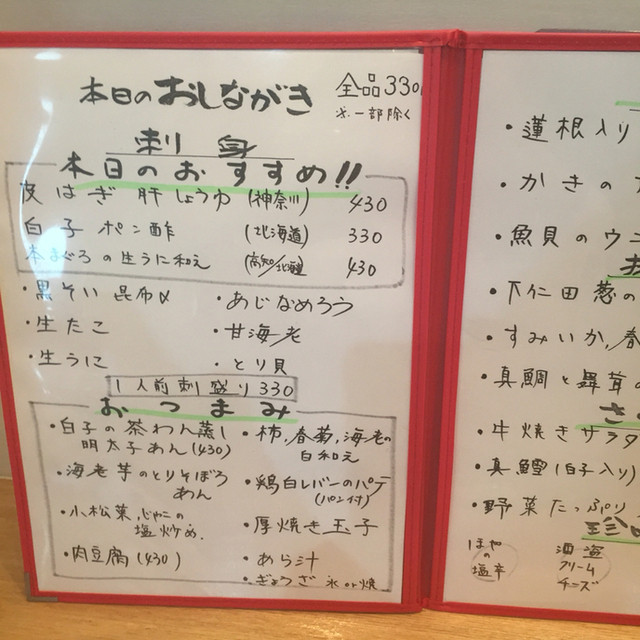 本日のおしながき
全品330
※一部除く
刺身
本日のおすすめ!!
皮はぎ肝しょうゆ (神奈川) 430
白子ポン酢 (北海道) 330
本まぐろの生うに和え (高知/北海道) 430
・黒そい昆布〆
・あじなめろう
・生たこ
・甘海老
・生うに
・とり貝
1人前刺盛り330
おつまみ
・白子の茶わん蒸し
明太子あん(430)
・柿,春菊,海老の
白和え
・海老芋のとりそぼろ
あん
・鶏白レバーのパテ
(パン付)
・小松菜,じゃこの
塩炒め
・厚焼き玉子
・肉豆腐(430)
・あら汁
・ぎょうざ 水or焼
・蓮根入り
・かきの
・魚貝のウニ
・下仁田葱の
・すみいか,春
・真鯛と舞茸の
・牛焼きサラダ
・真鱈(白子入り)
・野菜たっぷり
ほや
の
塩辛
酒盗
クリーム
チーズ